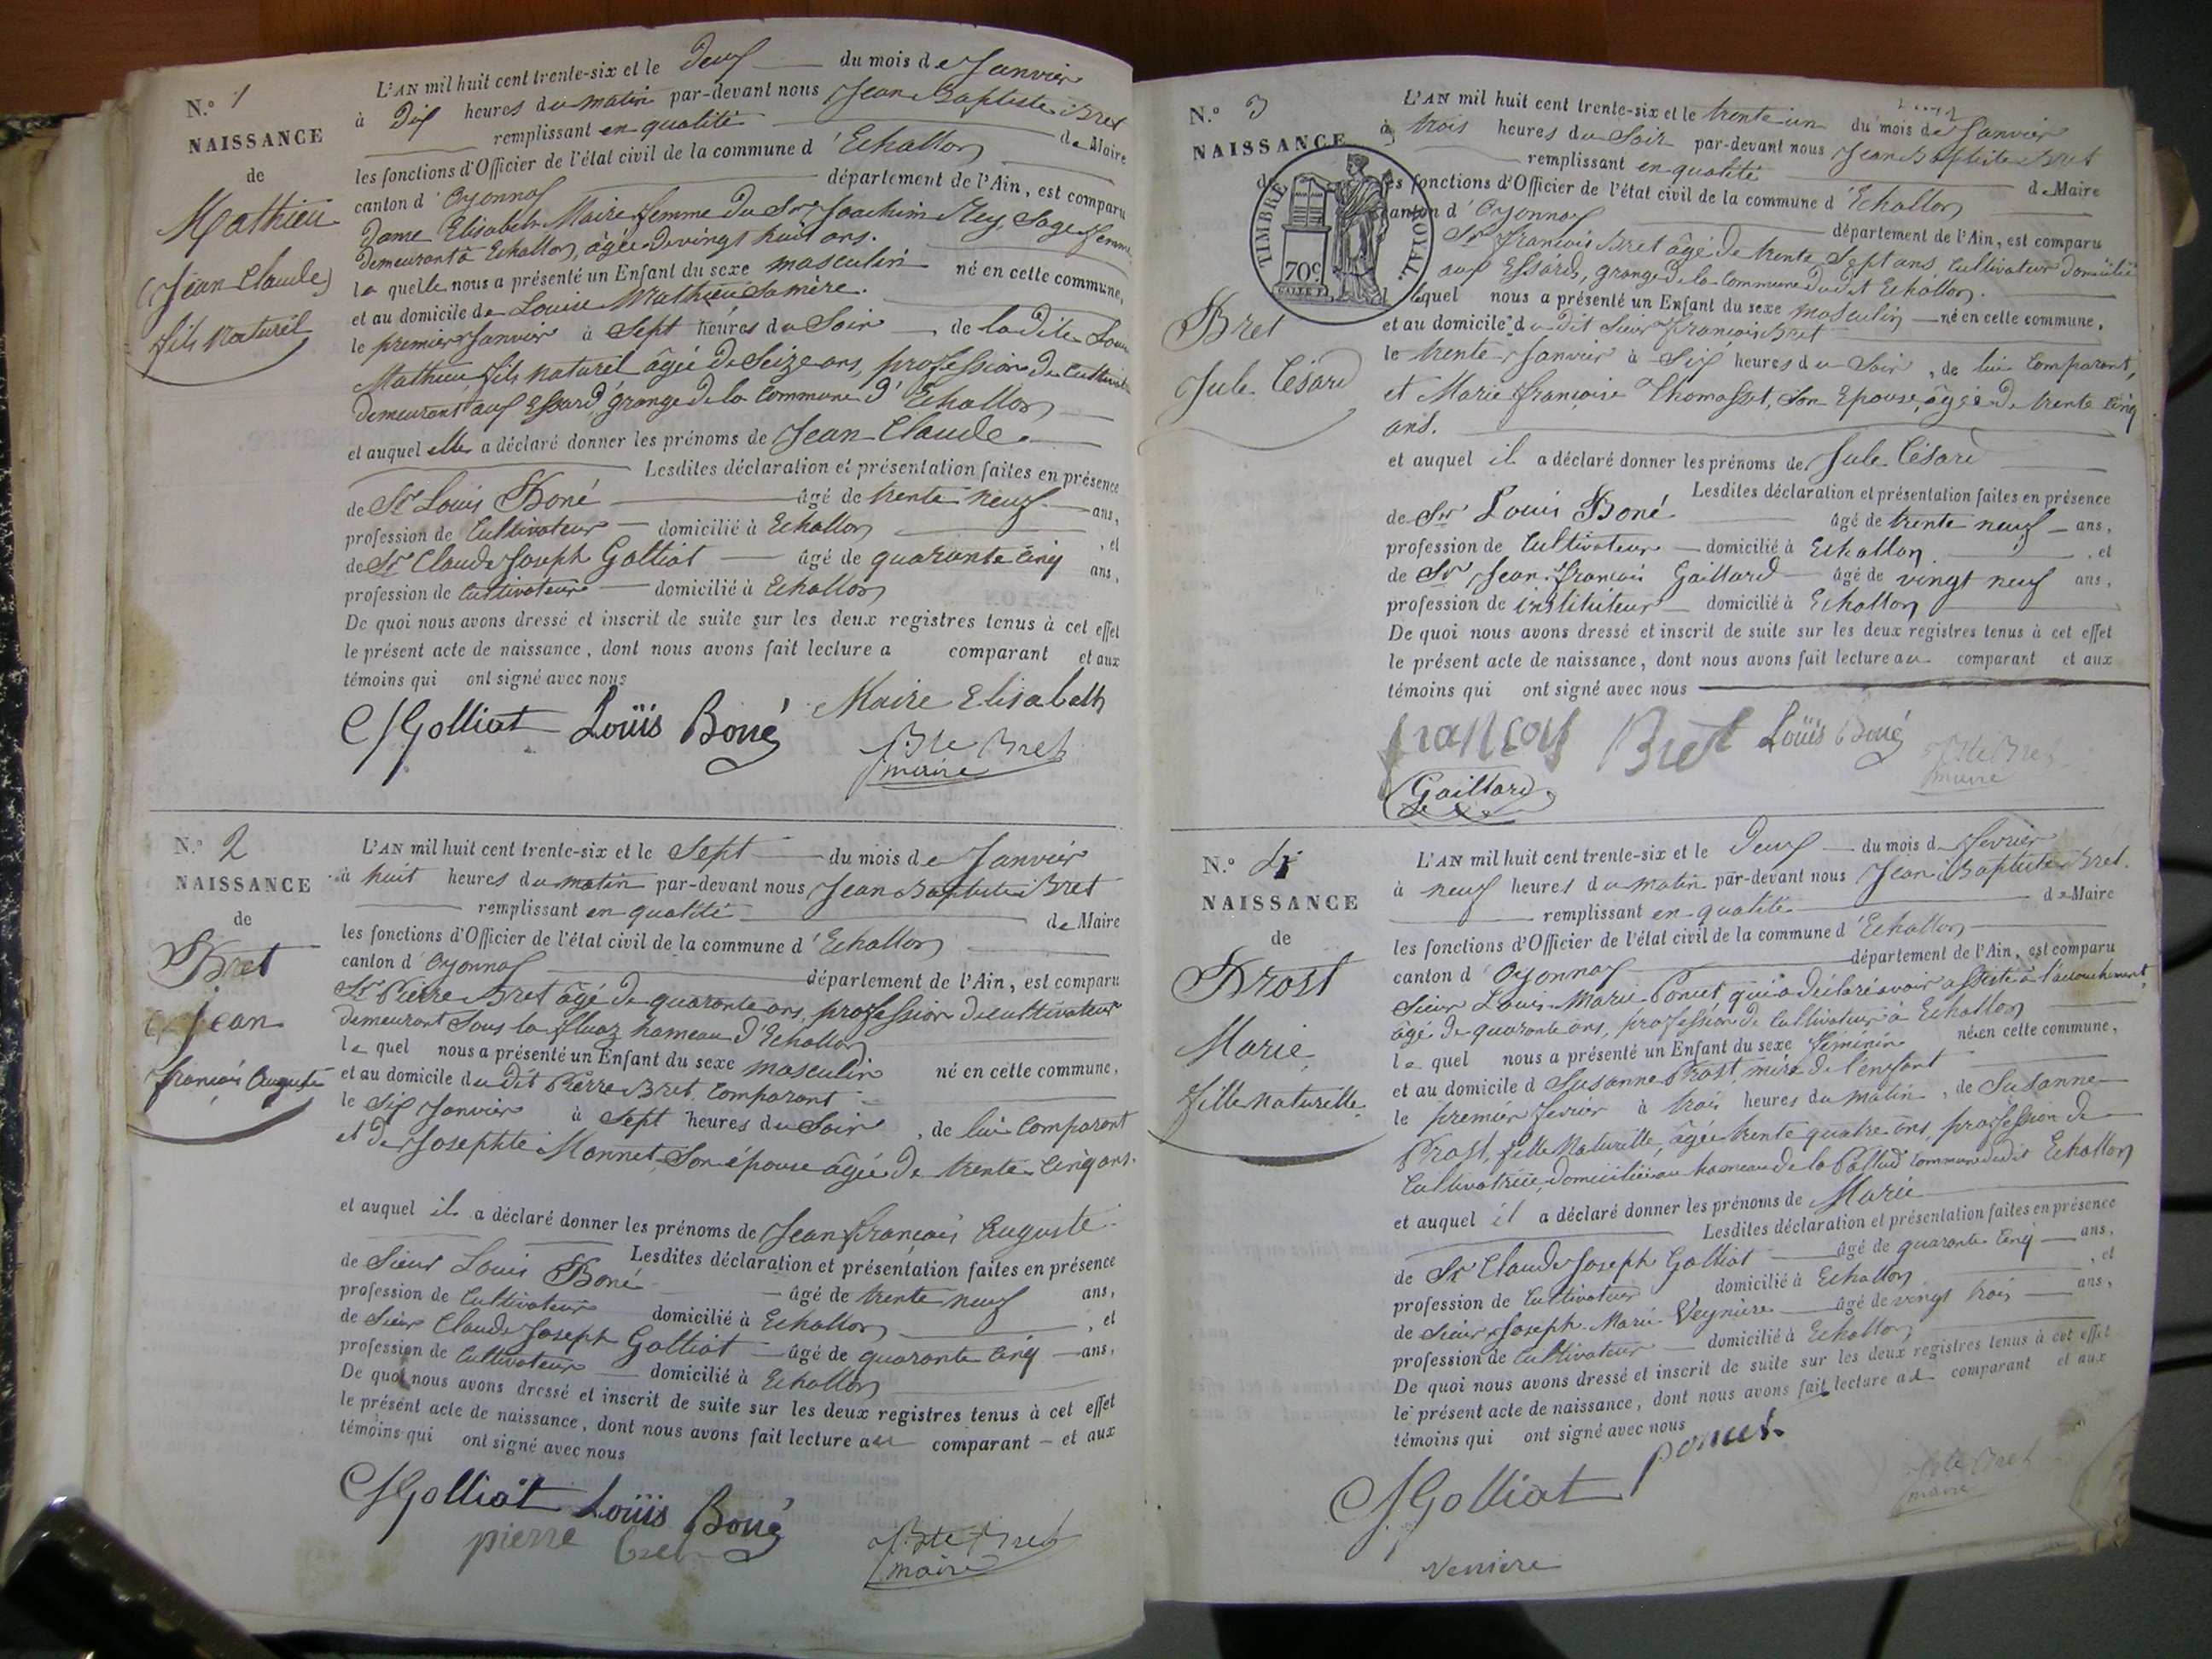 N.° 1
NAISSANCE
de
Mathieu
(Jean Claude)
fils naturel
L'AN mil huit cent trente-six et le Deux du mois de Janvier
à Dix heures du matin par-devant nous Jean Baptiste Bret
remplissant en qualité de Maire
les fonctions d'Officier de l'état civil de la commune d'Echallon
canton d'Oyonnax département de l'Ain, est comparu
Dame Elisabeth Maire femme du Sr Joachim Rey, Sage femme
demeurant à Echallon, âgée de vingt huit ans.
la quelle nous a présenté un Enfant du sexe masculin né en cette commune,
et au domicile de Louise Mathieu sa mère.
le premier Janvier à Sept heures du Soir de la dite Louise
Mathieu, fils naturel âgée de Seize ans, profession de Cultivat
demeurant aux Essard, grange de la Commune d'Echallon
et auquel elle a déclaré donner les prénoms de Jean Claude.
Lesdites déclaration et présentation faites en présence
de Sr Louis Boné âgé de trente neuf ans,
profession de Cultivateur domicilié à Echallon, et
de Sr Claude Joseph Golliat âgé de quarante Cinq ans,
profession de Cultivateur domicilié à Echallon
De quoi nous avons dressé et inscrit de suite sur les deux registres tenus à cet effet
le présent acte de naissance, dont nous avons fait lecture a comparant et aux
témoins qui ont signé avec nous
CJ Golliat Louïs Boné Maire Elisabeth
J Bte Bret
maire
N.° 2
NAISSANCE
de
Bret
Jean
françois Auguste
L'AN mil huit cent trente-six et le Sept du mois de Janvier
à huit heures du matin par-devant nous Jean Baptiste Bret
remplissant en qualité de Maire
les fonctions d'Officier de l'état civil de la commune d'Echallon
canton d'Oyonnax département de l'Ain, est comparu
Sr Pierre Bret âgé de quarante ans, profession de cultivateur
demeurant Sous la fluaz hameau d'Echallon
le quel nous a présenté un Enfant du sexe masculin né en cette commune,
et au domicile du dit Pierre Bret Comparant
le Six Janvier à Sept heures du Soir, de lui Comparant
et de Josephte Monnet Son épouse âgée de trente Cinq ans.
et auquel il a déclaré donner les prénoms de Jean françois Auguste.
Lesdites déclaration et présentation faites en présence
de Sieur Louis Boné âgé de trente neuf ans,
profession de Cultivateur domicilié à Echallon, et
de Sieur Claude Joseph Golliat âgé de quarante Cinq ans,
profession de Cultivateur domicilié à Echallon
De quoi nous avons dressé et inscrit de suite sur les deux registres tenus à cet effet
le présent acte de naissance, dont nous avons fait lecture au comparant et aux
témoins qui ont signé avec nous
CJ Golliat Louïs Boné
pierre bret J Bte Bret
maire
N.° 3
NAISSANCE
de
TIMBRE ROYAL.
70c
Bret
Jule Césard
L'AN mil huit cent trente-six et le trente un du mois de Janvier
à trois heures du Soir par-devant nous Jean Baptiste Bret
remplissant en qualité de Maire
les fonctions d'Officier de l'état civil de la commune d'Echallon
canton d'Oyonnax département de l'Ain, est comparu
Sr françois Bret âgé de trente Sept ans, Cultivateur domicilié
aux Essards, grange de la Commune du dit Echallon.
lequel nous a présenté un Enfant du sexe masculin né en cette commune,
et au domicile du dit Sieur françois Bret
le trente Janvier à Six heures du Soir, de lui Comparant,
et Marie françoise Thomasset, Son Epouse, âgée de trente Cinq
ans.
et auquel il a déclaré donner les prénoms de Jule Césard
Lesdites déclaration et présentation faites en présence
de Sr Louis Boné âgé de trente neuf ans,
profession de Cultivateur domicilié à Echallon, et
de Sr Jean françois Gaillard âgé de vingt neuf ans,
profession de instituteur domicilié à Echallon
De quoi nous avons dressé et inscrit de suite sur les deux registres tenus à cet effet
le présent acte de naissance, dont nous avons fait lecture au comparant et aux
témoins qui ont signé avec nous
françois Bret Louïs Boné J Bte Bret
maire
Gaillard
N.° 4
NAISSANCE
de
Prost
Marie
fille naturelle
L'AN mil huit cent trente-six et le Deux du mois de fevrier
à neuf heures du matin par-devant nous Jean Baptiste Bret.
remplissant en qualité de Maire
les fonctions d'Officier de l'état civil de la commune d'Echallon
canton d'Oyonnax département de l'Ain, est comparu
Sieur Louis Marie Poncet qui a déclaré avoir assisté à l'accouchement,
âgé de quarante ans, profession de Cultivateur à Echallon
le quel nous a présenté un Enfant du sexe féminin née en cette commune,
et au domicile d Susanne Prost, mère de l'enfant
le premier fevrier à trois heures du matin, de Susanne
Prost, fille Naturelle, âgée trente quatre ans, profession de
Cultivatrice, domiciliée au hameau de la Pallud commune du dit Echallon
et auquel il a déclaré donner les prénoms de Marie
Lesdites déclaration et présentation faites en présence
de Sr Claude Joseph Golliat âgé de quarante Cinq ans,
profession de Cultivateur domicilié à Echallon, et
de Sieur Joseph Marie Veyniere âgé de vingt trois ans,
profession de Cultivateur domicilié à Echallon
De quoi nous avons dressé et inscrit de suite sur les deux registres tenus à cet effet
le présent acte de naissance, dont nous avons fait lecture au comparant et aux
témoins qui ont signé avec nous
poncet
CJ Golliat J Bte Bret
maire